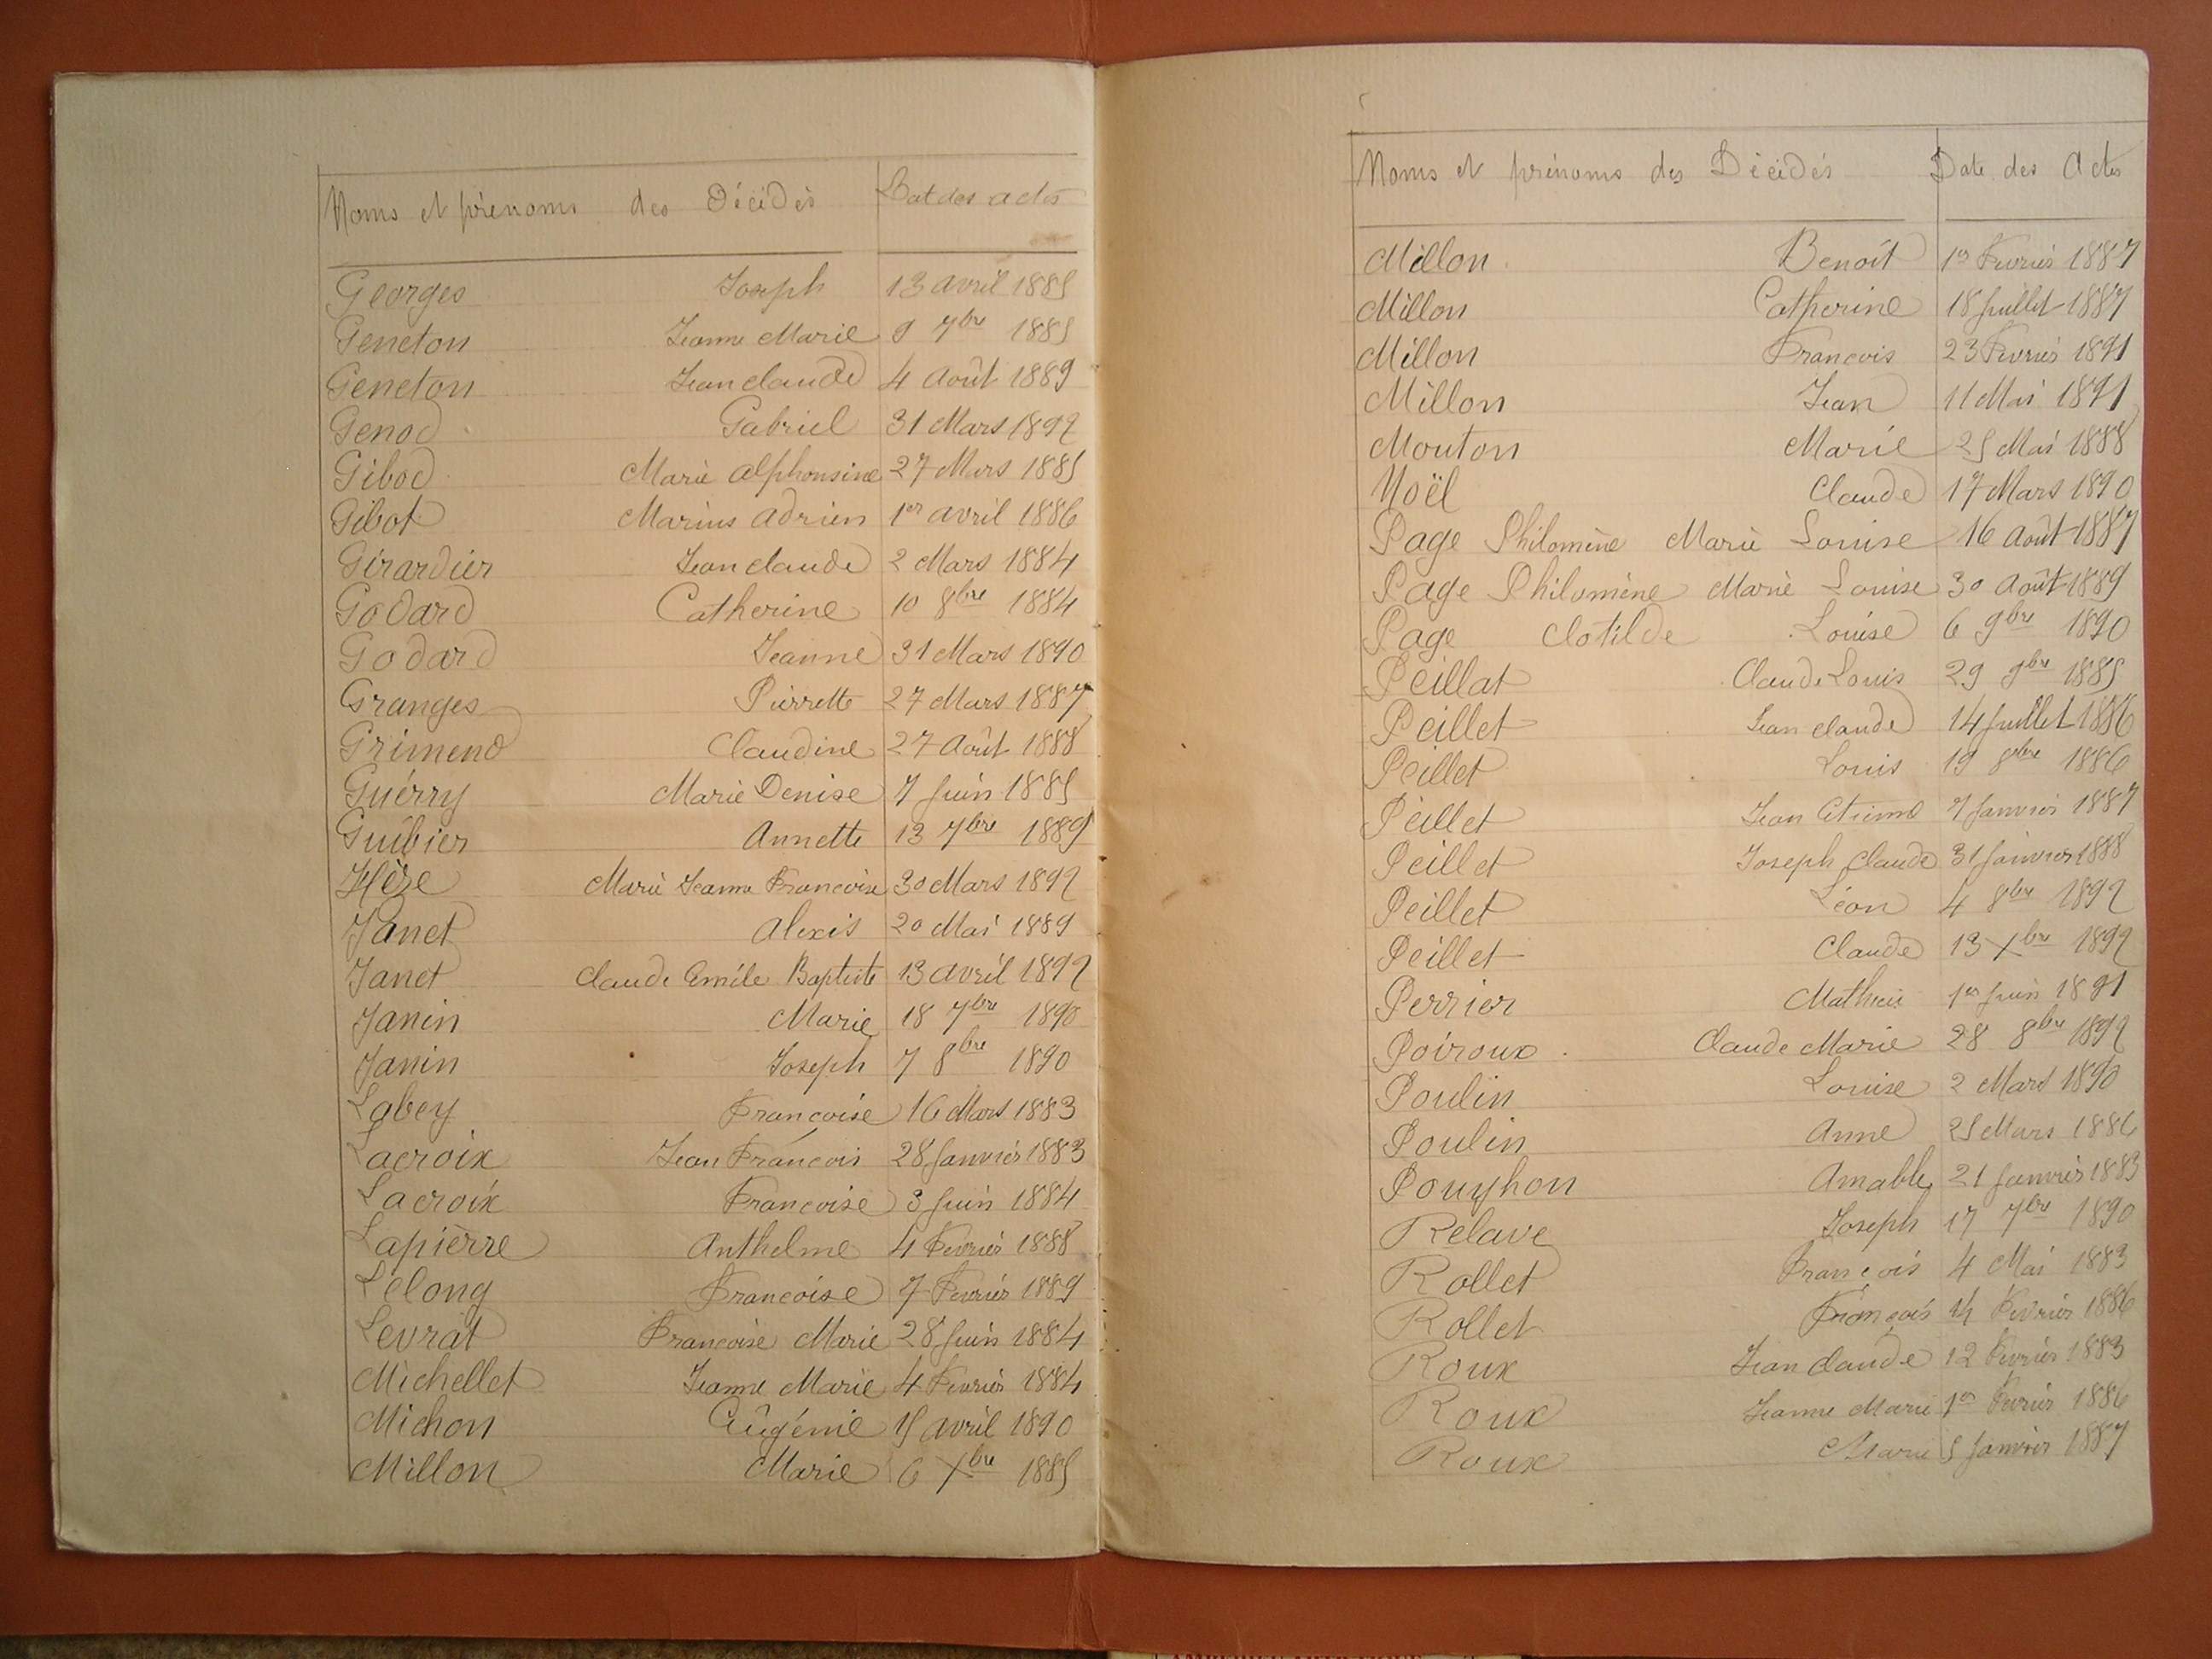 Noms et prénoms des Décédés Dat des actes
Georges Joseph 13 avril 1885
Geneton Jeanne Marie 9 7bre 1885
Geneton Jean claude 4 Août 1889
Genod Gabriel 31 Mars 1892
Gibod Marie alphonsine 27 Mars 1885
Gibot Marius adrien 1er avril 1886
Girardier Jean claude 2 Mars 1884
Godard Catherine 10 8bre 1884
Godard Jeanne 31 Mars 1890
Granges Pierrette 27 Mars 1887
Grimend Claudine 27 Août 1888
Guérry Marie Denise 7 Juin 1885
Guibier Annette 13 7bre 1889
Hèze Marie Jeanne Francoise 30 Mars 1892
Janet alexis 20 Mai 1889
Janet Claude Emile Baptiste 13 avril 1892
Janin Marie 18 7bre 1890
Janin Joseph 7 8bre 1890
Labey Françoise 16 Mars 1883
Lacroix Jean François 28 Janvier 1883
Lacroix Francoise 3 Juin 1884
Lapierre Anthelme 4 Fevrier 1888
Lelong Francoise 7 Fevrier 1889
Levrat Françoise Marie 28 Juin 1884
Michellet Jeanne Marie 4 Fevrier 1884
Michon Eugénie 15 avril 1890
Millon Marie 6 Xbre 1885
Noms et prénoms des Décédés Date des Actes
Millon Benoît 1er Fevrier 1887
Millon Catherine 18 Juillet 1887
Millon Francois 23 Fevrier 1891
Millon Jean 11 Mai 1891
Mouton Marie 25 Mai 1888
Noël Claude 17 Mars 1890
Page Philomène Marie Louise 16 Août 1887
Page Philomène Marie Louise 30 Août 1889
Page Clotilde Louise 6 9bre 1890
Peillat Claude Louis 29 9bre 1885
Peillet Jean claude 14 Juillet 1886
Peillet Louis 19 8bre 1886
Peillet Jean Etienne 7 Janvier 1887
Peillet Joseph Claude 31 Janvier 1888
Peillet Léon 4 8bre 1892
Peillet Claude 13 Xbre 1892
Perrier Mathieu 1er Juin 1891
Poiroux Claude Marie 28 8bre 1892
Poulin Louise 2 Mars 1890
Poulin Anne 25 Mars 1886
Pouyhon Amable 21 Janvier 1883
Relave Joseph 17 7bre 1890
Rollet François 4 Mai 1883
Rollet François 14 Fevrier 1886
Roux Jean claude 12 Fevrier 1883
Roux Jeanne Marie 1er Fevrier 1886
Roux Marie 5 Janvier 1887